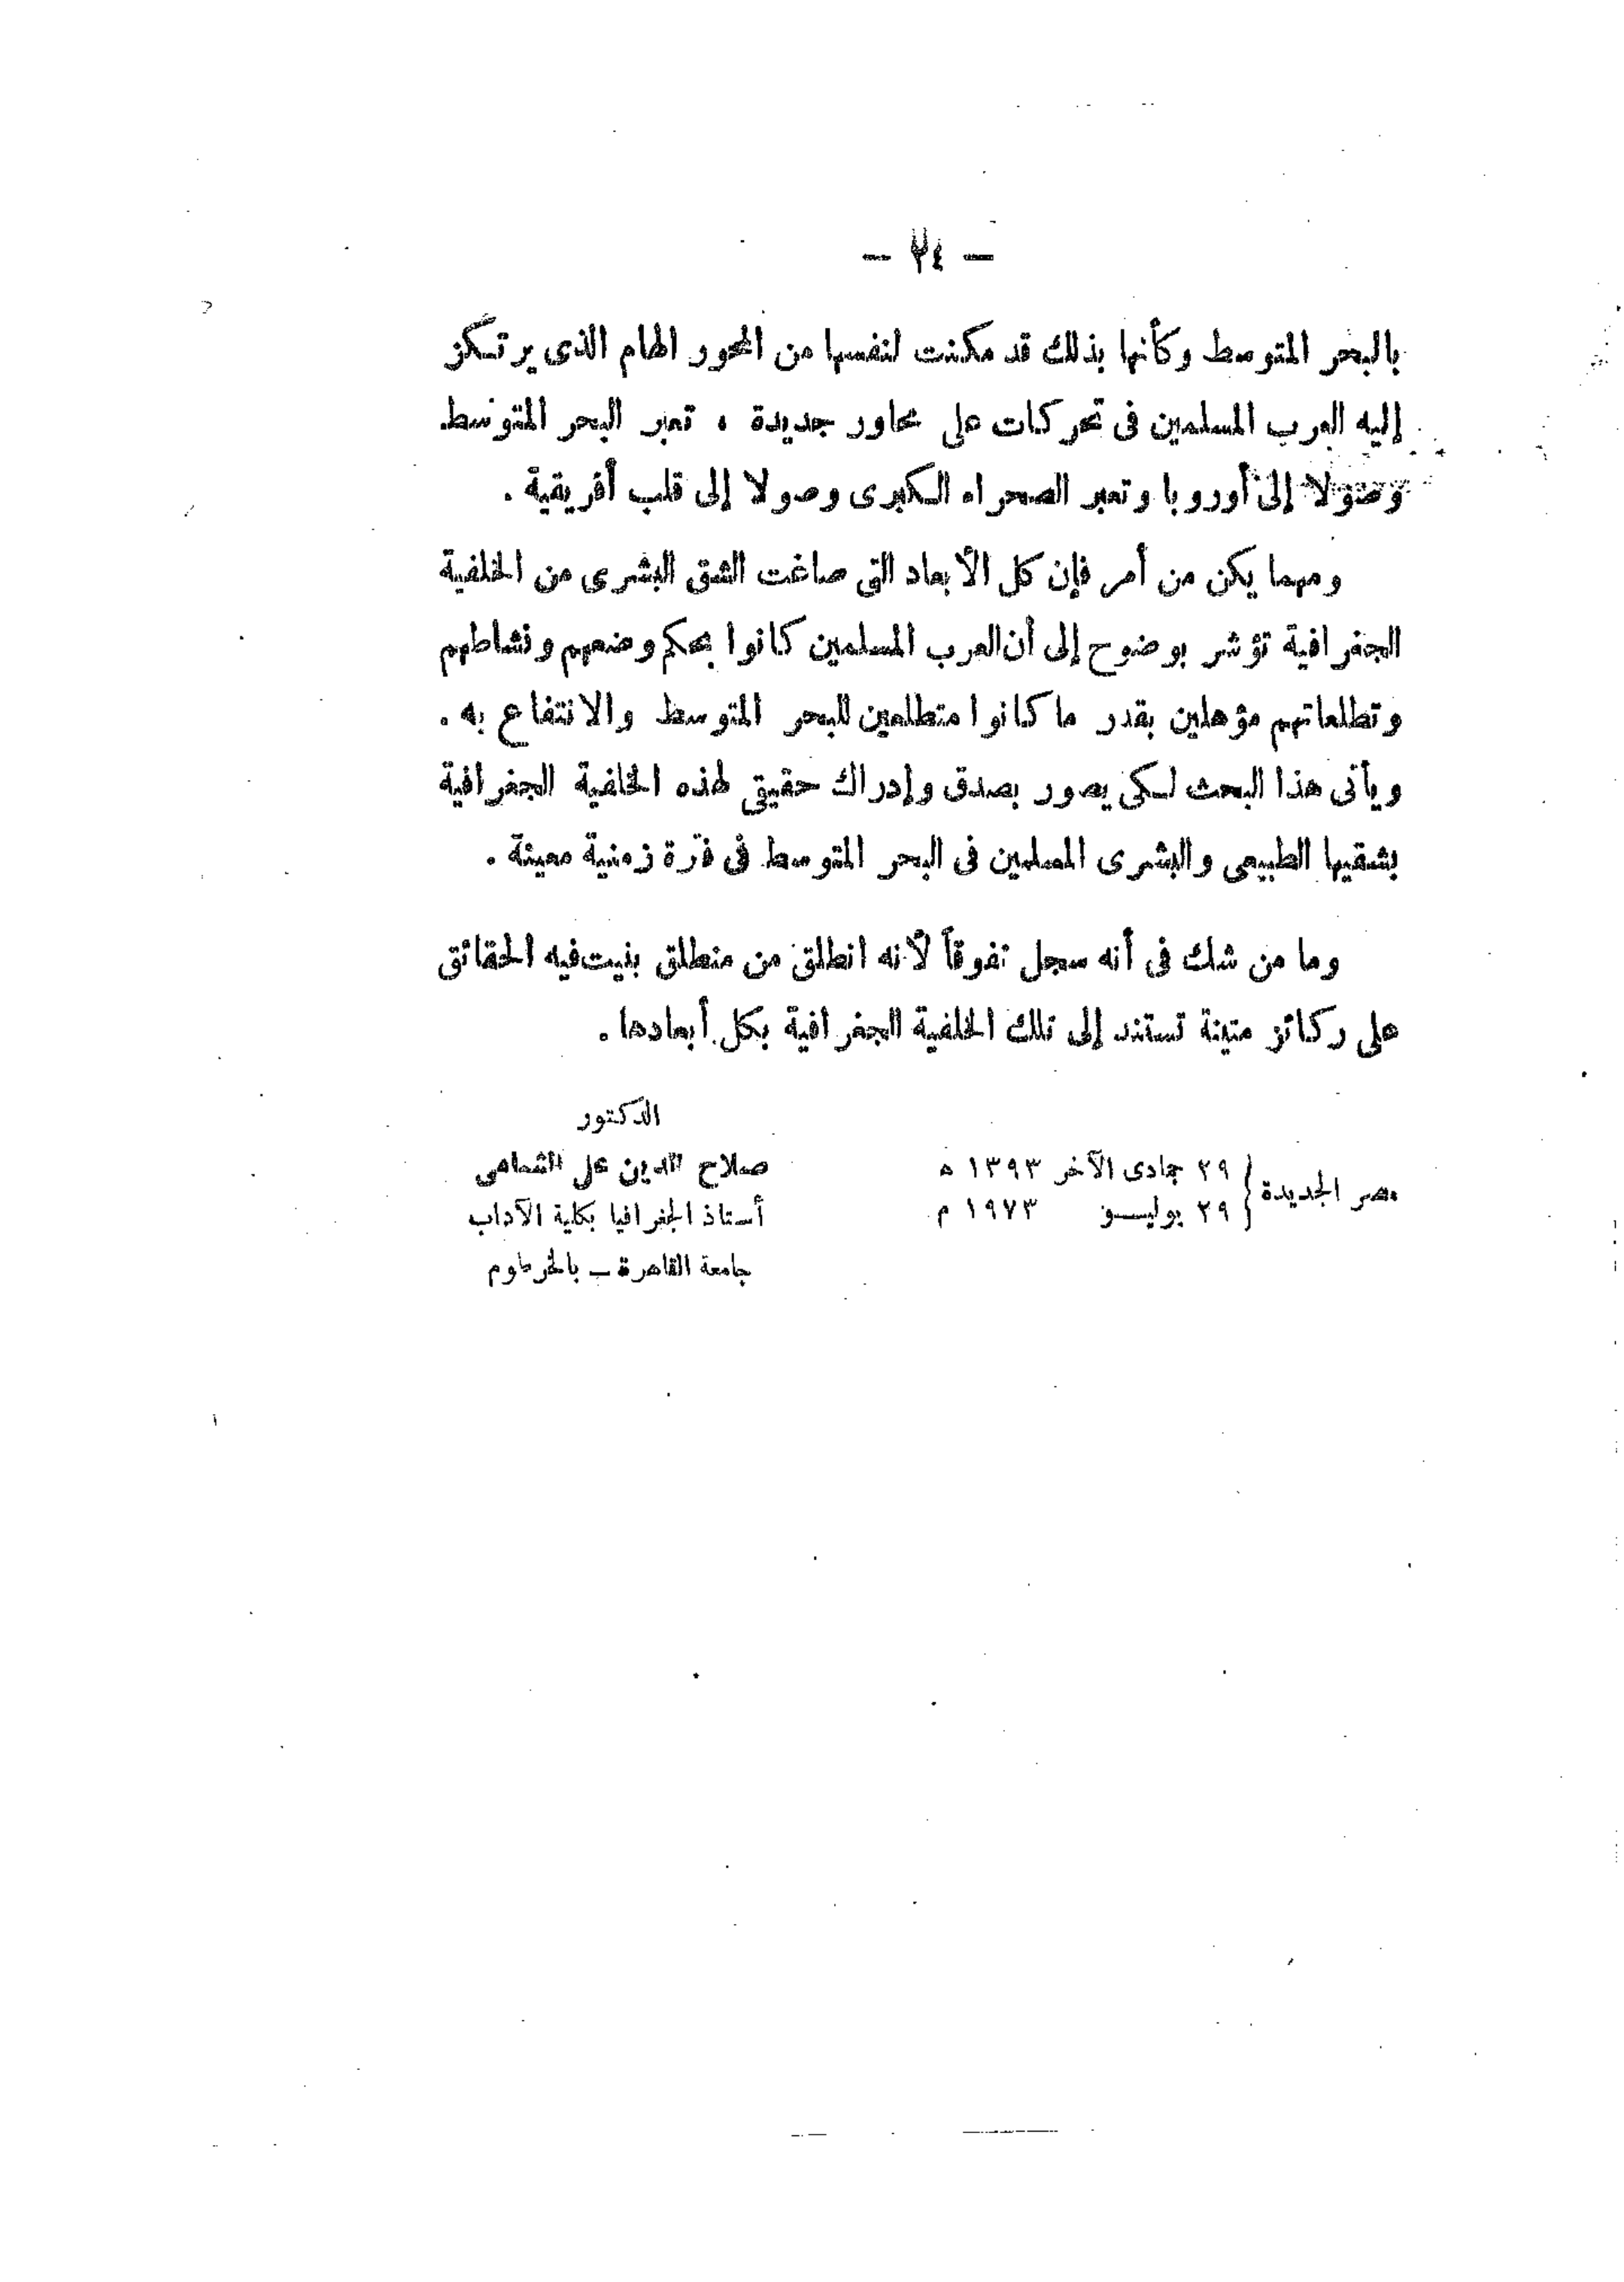 — ٢٤ —
بالبحر المتوسط وكأنها بذلك قد مكنت لنفسها من المحور الهام الذى يرتكز
إليه العرب المسلمين فى تحركات على محاور جديدة ، تعبر البحر المتوسط
وصولا إلى أوروبا وتعبر الصحراء الكبرى وصولا إلى قلب أفريقية .
ومهما يكن من أمر فإن كل الأبعاد التى صاغت الشق البشرى من الخلفية
الجغرافية تؤشر بوضوح إلى أن العرب المسلمين كانوا بحكم وضعهم ونشاطهم
وتطلعاتهم مؤهلين بقدر ما كانوا متطلعين للبحر المتوسط والانتفاع به .
ويأتى هذا البحث لكى يصور بصدق وإدراك حقيقى لهذه الخلفية الجغرافية
بشقيها الطبيعى والبشرى المسلمين فى البحر المتوسط فى فترة زمنية معينة .
وما من شك فى أنه سجل تفوقاً لأنه انطلق من منطلق بنيت فيه الحقائق
على ركائز متينة تستند إلى تلك الخلفية الجغرافية بكل أبعادها .
الدكتور
مصر الجديدة { ٢٩ جمادى الآخر ١٣٩٣ ه صلاح الدين على الشامى
٢٩ يوليــو ١٩٧٣ م أستاذ الجغرافيا بكلية الآداب
جامعة القاهرة ــ بالخرطوم